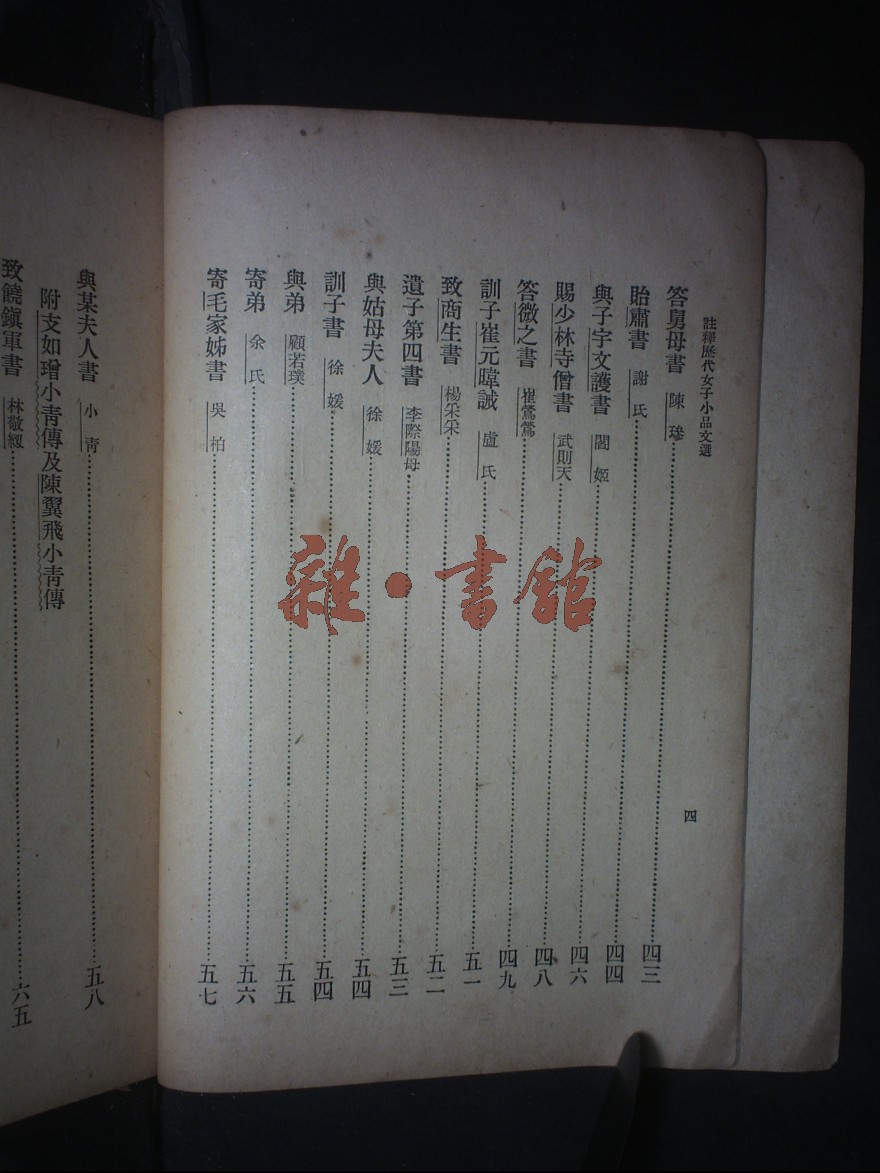 註釋歷代女子小品文選
四
答舅母書 陳㻸 四三
貽蕭書 謝氏 四四
與子宇文護書 閻姬 四六
賜少林寺僧書 武則天 四八
答微之書 崔鶯鶯 四九
訓子崔元暐誡 盧氏 五一
致商生書 楊采采 五二
遺子第四書 李際陽母 五三
與姑母夫人 徐媛 五四
訓子書 徐媛 五四
與弟 顧若璞 五五
寄弟 余氏 五六
寄毛家姊書 吳柏 五七
與某夫人書 小青 五八
附支如璔小靑傳及陳翼飛小靑傳
致饒鎭軍書 林敬紉 六五
雜·書館